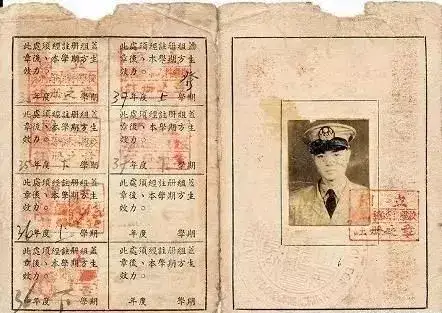 此處須經註册組蓋
章後、本學期方生
效力。
年度 學期
此處須經註册組蓋
章後、本學期方生
效力。
35年度下學期
此處須經註册組蓋
章後、本學期方生
效力。
36年度上學期
此處須經註册組蓋
章後、本學期方生
效力。
36年度下學期
此處須經註册組蓋
章後、本學期方生
效力。
37年度上學期
此處須經註册組蓋
章後、本學期方生
效力。
37年度下學期
此處須經註册組蓋
章後、本學期方生
效力。
年度 學期
此處須經註册組蓋
章後、本學期方生
效力。
年度 學期
註册之章